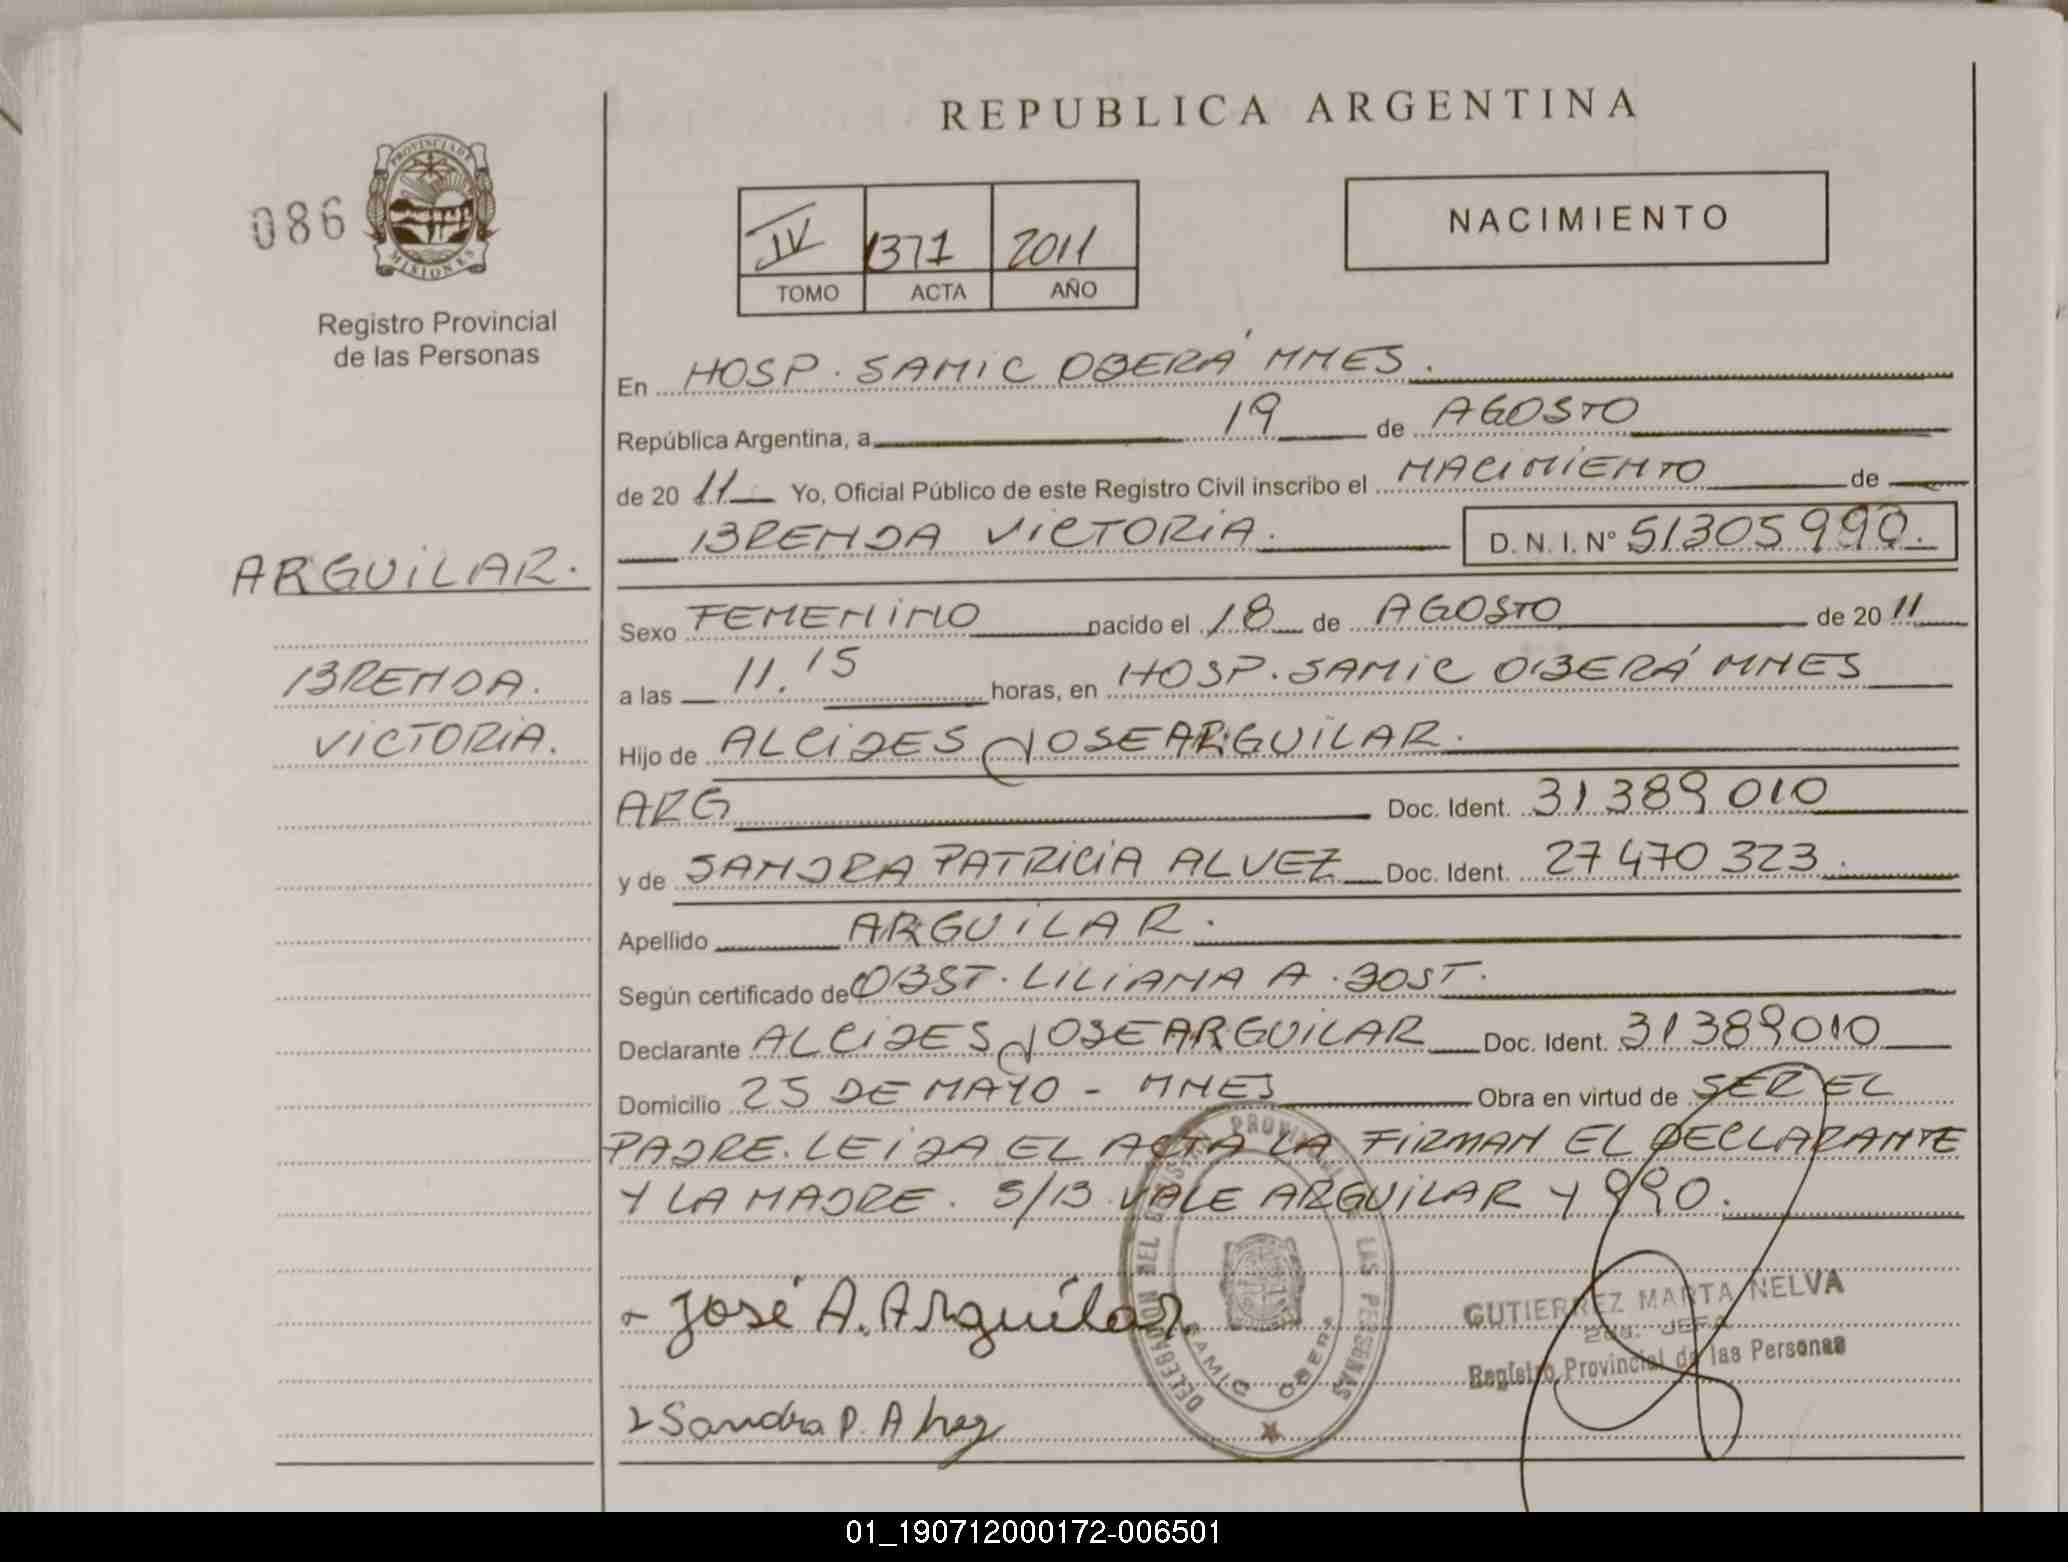 REPUBLICA ARGENTINA
086
PROVINCIA DE
MISIONES
Registro Provincial
de las Personas
IV 1371 2011
TOMO ACTA AÑO
NACIMIENTO
En HOSP. SAMIC OBERÁ MNES.
República Argentina, a 19 de AGOSTO
de 20 11 Yo, Oficial Público de este Registro Civil inscribo el NACIMIENTO de
BRENDA VICTORIA. D. N. I. N° 51305990.
ARGUILAR.
BRENDA.
VICTORIA.
Sexo FEMENINO nacido el 18 de AGOSTO de 20 11
a las 11.15 horas, en HOSP. SAMIC OBERÁ MNES
Hijo de ALCIDES JOSE ARGUILAR.
ARG Doc. Ident. 31389010
y de SANDRA PATRICIA ALVEZ Doc. Ident. 27470323.
Apellido ARGUILAR.
Según certificado de OBST. LILIANA A. BOST.
Declarante ALCIDES JOSE ARGUILAR Doc. Ident. 31389010
Domicilio 25 DE MAYO - MNES Obra en virtud de SER EL
PADRE. LEIDA EL ACTA LA FIRMAN EL DECLARANTE
Y LA MADRE. S/B VALE ARGUILAR Y 990.
José A. Arguilar
Sandra P. Alvez
DELEGACION DEL REGISTRO PROVINCIAL DE LAS PERSONAS
SAMIC OBERA
GUTIERREZ MARTA NELVA
2da. JEFA
Registro Provincial de las Personas
01_190712000172-006501